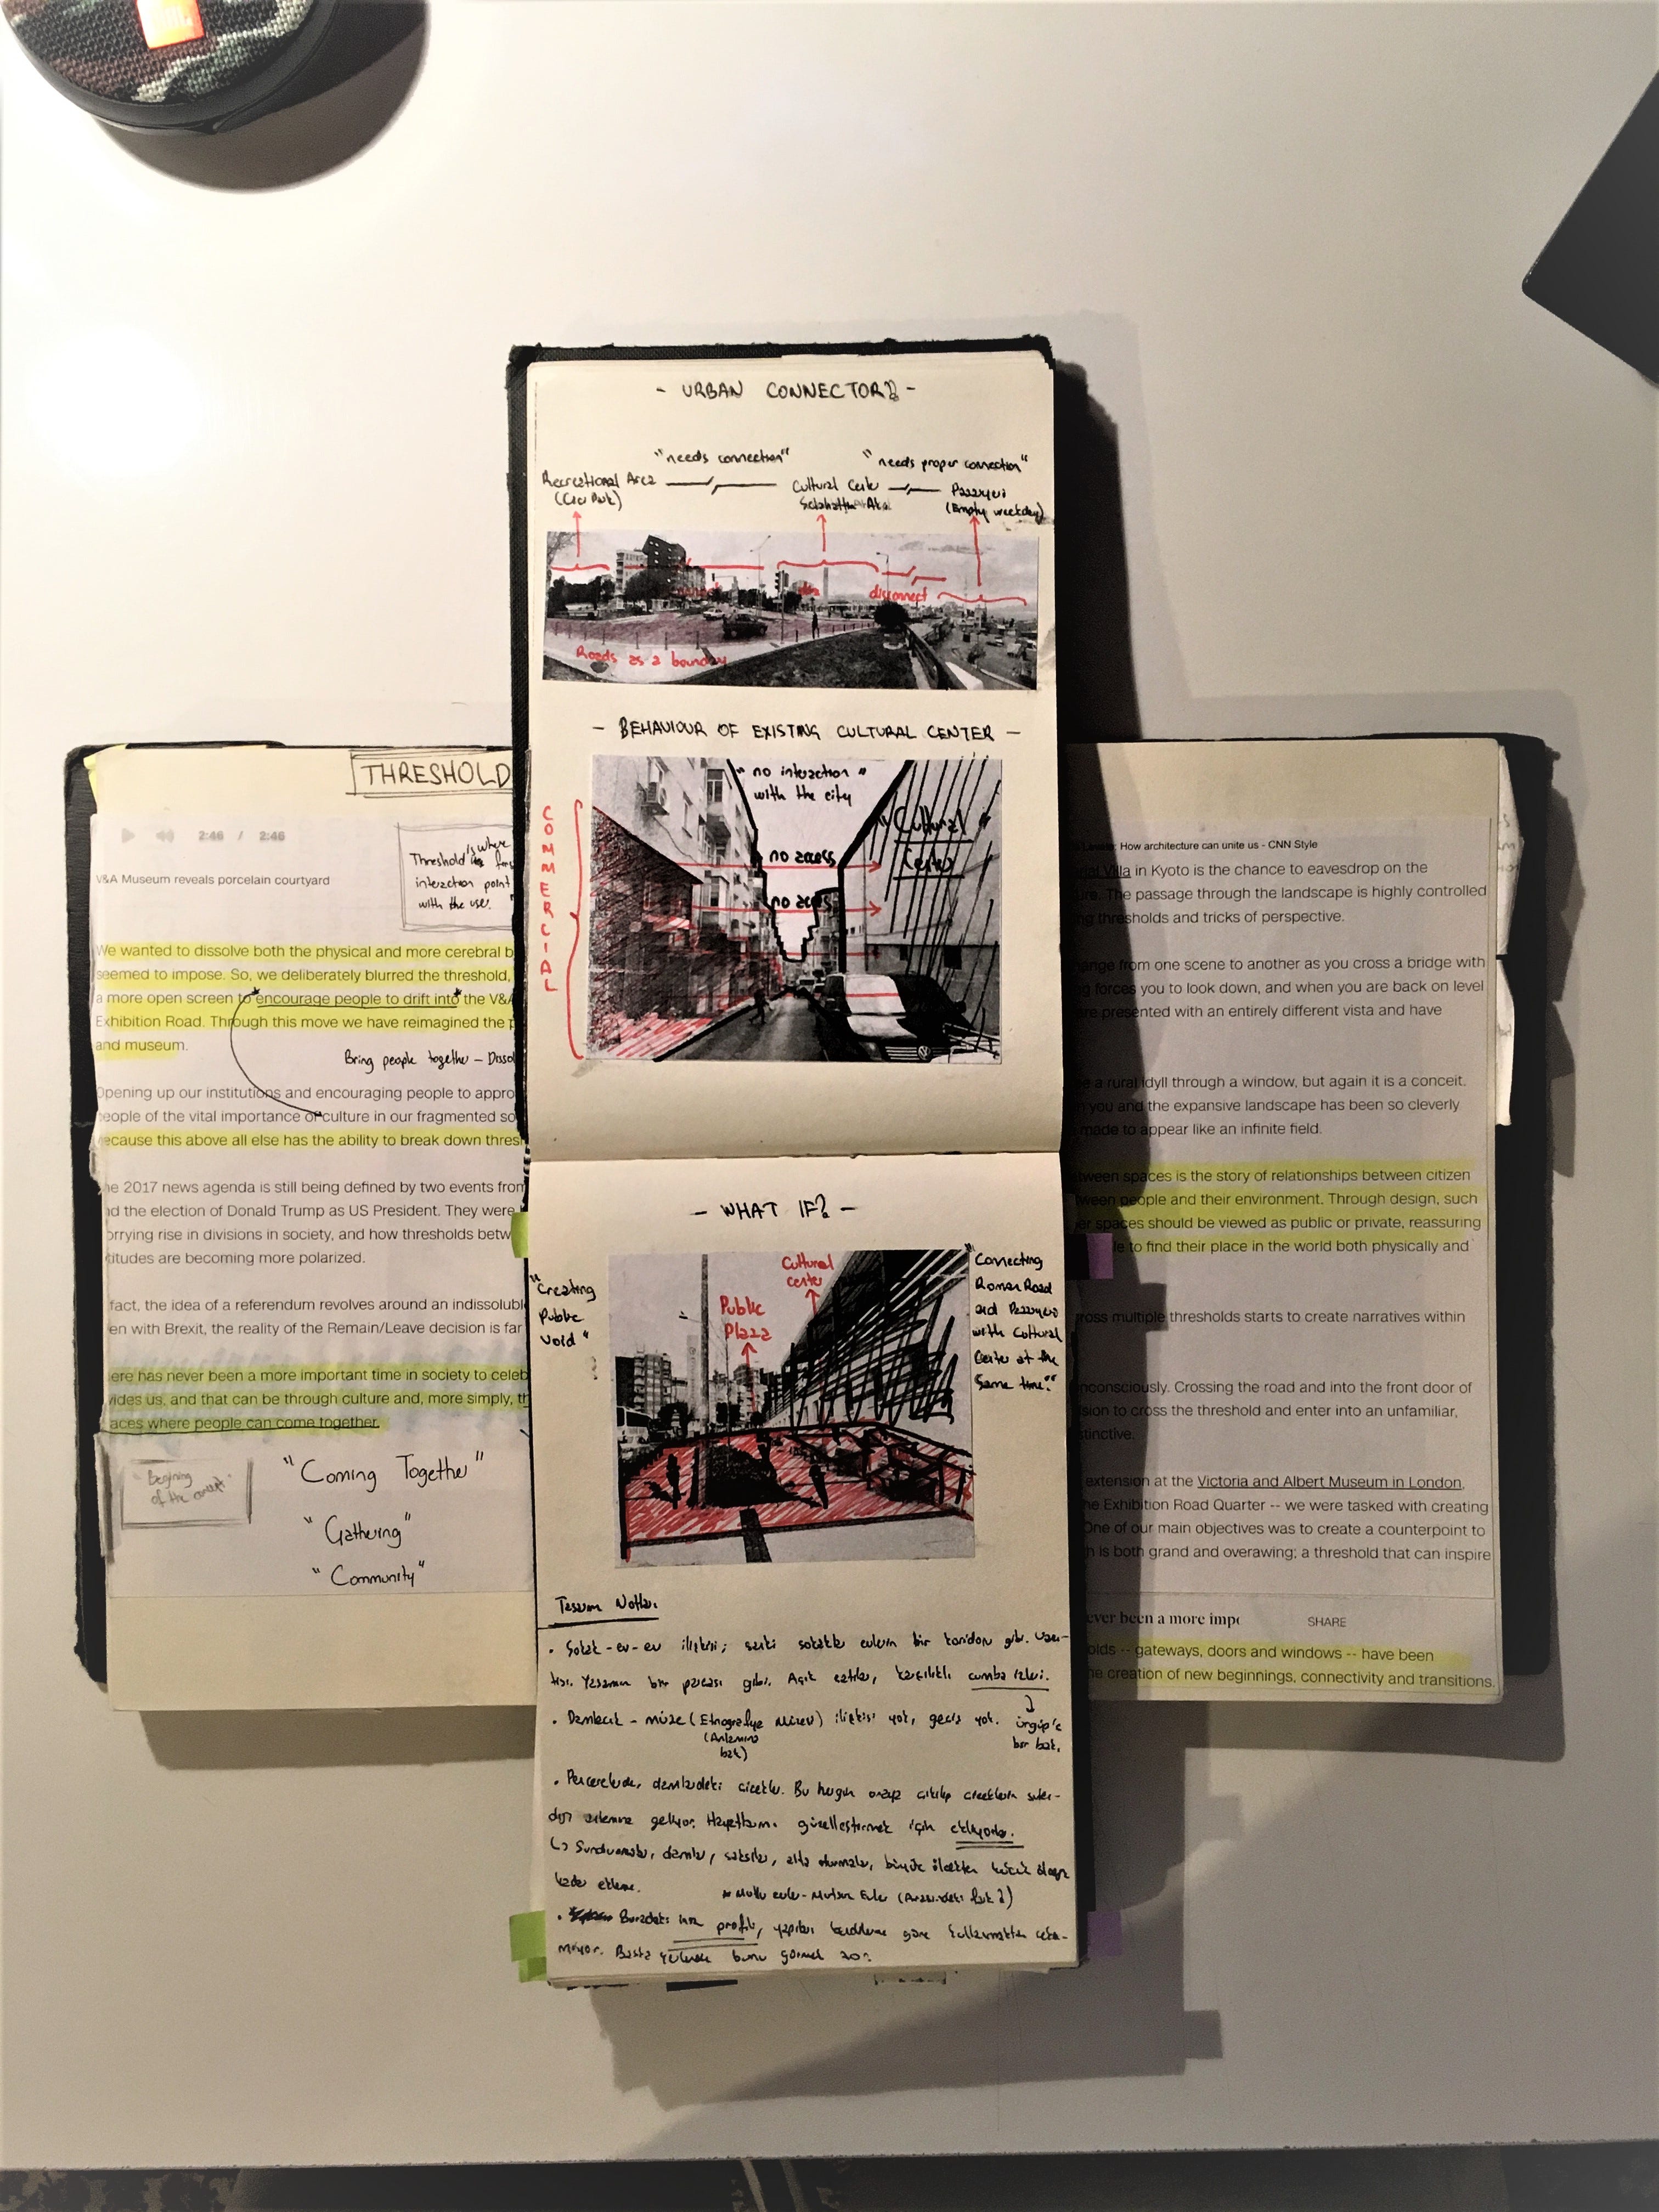 - URBAN CONNECTOR? -
"needs connection"
"needs proper connection"
Recreational Area
Cultural Center
Pazaryeri
(Empty weekday)
disconnect
Roads as a boundary
- BEHAVIOUR OF EXISTING CULTURAL CENTER -
COMMERCIAL
"no interaction"
with the city
"Cultural
Center"
no access
no access
- WHAT IF? -
"Creating
Public
Void"
Public
Plaza
Cultural
center
"Connecting
Roman Road
and Pazaryeri
with Cultural
Center at the
same time."
Tasarım Notları
• Sokak-ev-ev ilişkisi; sanki sokakta evlerin bir koridoru gibi.
Yaşamın bir parçası gibi. Açık karşılıklı cumba
• müze (Etnografya Müzesi) ilişkisi yok, geçiş yok.
Ürgüp'e
bir bak.
• Pencerelerde, damlardaki çiçekler. Bu hergün oraya çıkılıp çiçeklerin
anlamına geliyor. güzelleştirmek için ekliyorlar.
damlar, saksılar, büyük ölçekten küçük ölçeğe
kadar ekleme.
* Mutlu evler-Mutsuz Evler (Arasındaki fark?)
• Buradaki profili, yapıları göre kullanmaktan
Başta bunu görmek zor.
THRESHOLD
2:46 / 2:46
V&A Museum reveals porcelain courtyard
Threshold's where
interaction point
with the user.
We wanted to dissolve both the physical and more cerebral b
seemed to impose. So, we deliberately blurred the threshold,
a more open screen to encourage people to drift into the V&A
Exhibition Road. Through this move we have reimagined the
and museum.
Bring people together - Dissol
Opening up our institutions and encouraging people to appro
eople of the vital importance of culture in our fragmented so
ecause this above all else has the ability to break down thresh
he 2017 news agenda is still being defined by two events from
d the election of Donald Trump as US President. They were
orrying rise in divisions in society, and how thresholds betw
titudes are becoming more polarized.
fact, the idea of a referendum revolves around an indissolubl
en with Brexit, the reality of the Remain/Leave decision is far
ere has never been a more important time in society to celeb
vides us, and that can be through culture and, more simply, th
aces where people can come together.
"Begining
of the concept"
"Coming Together"
"Gathering"
"Community"
: How architecture can unite us - CNN Style
Villa in Kyoto is the chance to eavesdrop on the
The passage through the landscape is highly controlled
thresholds and tricks of perspective.
ange from one scene to another as you cross a bridge with
g forces you to look down, and when you are back on level
are presented with an entirely different vista and have
e a rural idyll through a window, but again it is a conceit.
you and the expansive landscape has been so cleverly
made to appear like an infinite field.
tween spaces is the story of relationships between citizen
ween people and their environment. Through design, such
er spaces should be viewed as public or private, reassuring
to find their place in the world both physically and
ross multiple thresholds starts to create narratives within
nconsciously. Crossing the road and into the front door of
sion to cross the threshold and enter into an unfamiliar,
stinctive.
extension at the Victoria and Albert Museum in London,
he Exhibition Road Quarter -- we were tasked with creating
One of our main objectives was to create a counterpoint to
h is both grand and overawing; a threshold that can inspire
ever been a more impo
SHARE
olds -- gateways, doors and windows -- have been
he creation of new beginnings, connectivity and transitions.